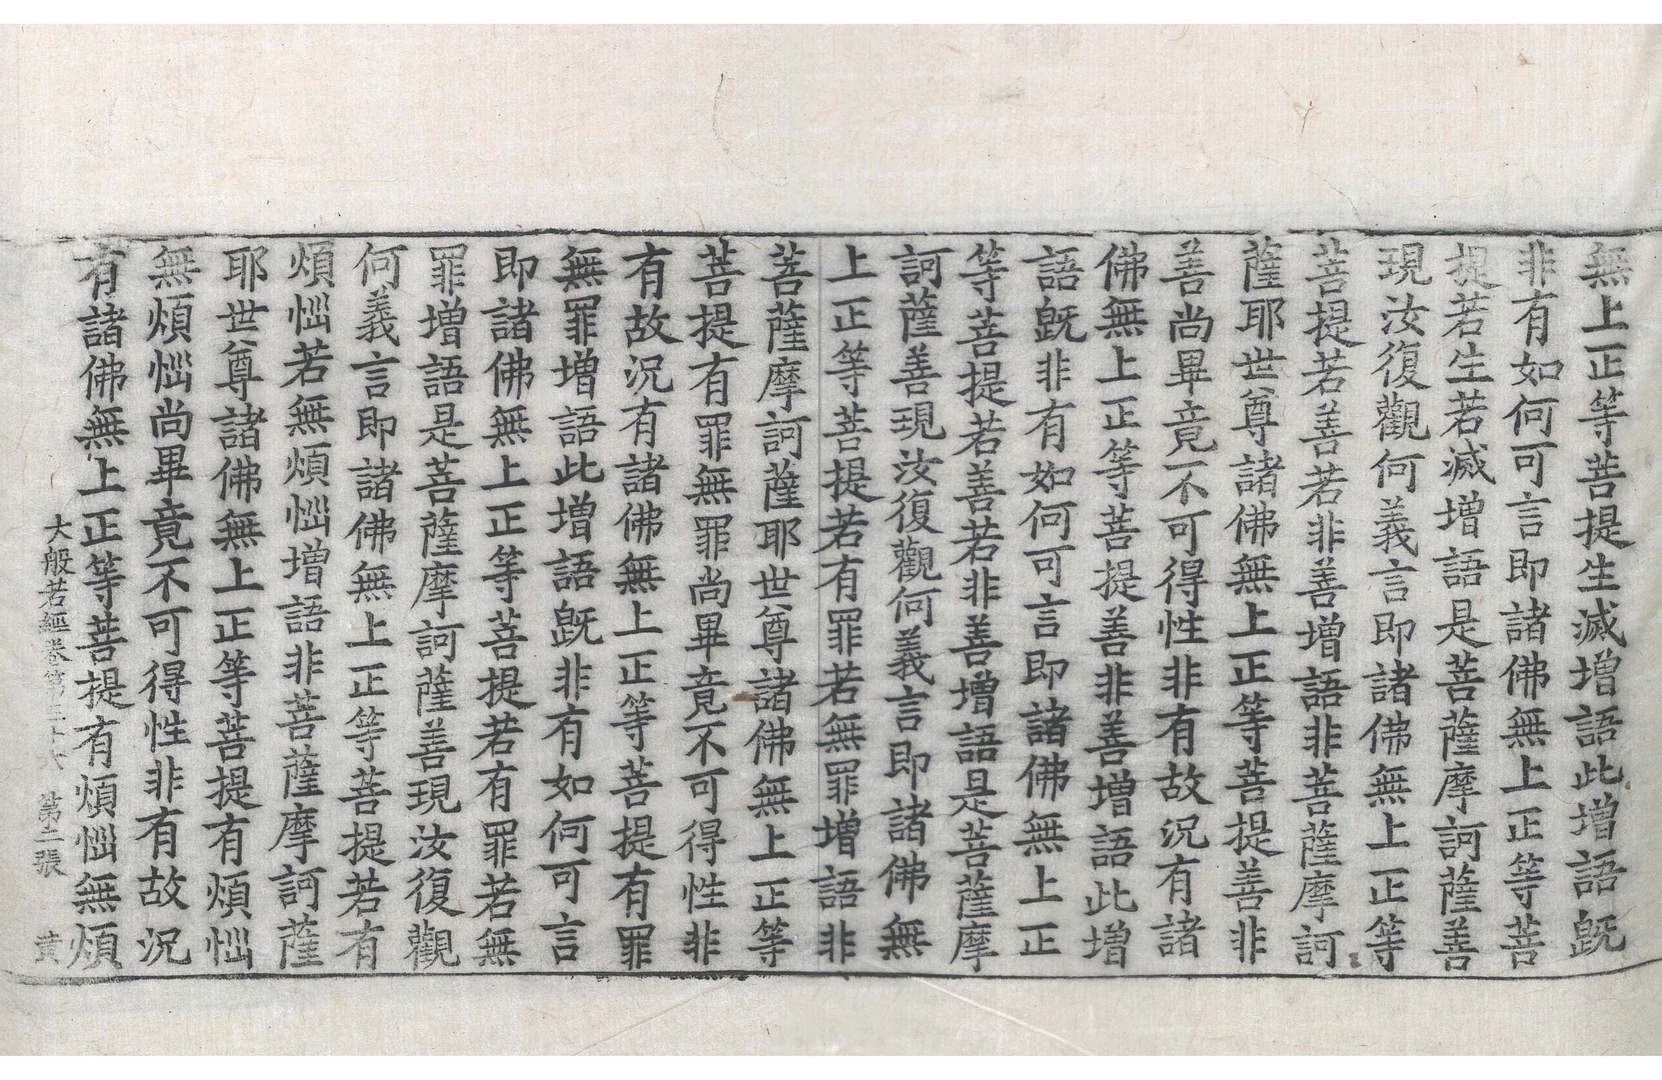 無上正等菩提生滅增語此增語旣
非有如何可言即諸佛無上正等菩
提若生若滅增語是菩薩摩訶薩善
現汝復觀何義言即諸佛無上正等
菩提若善若非善增語非菩薩摩訶
薩耶世尊諸佛無上正等菩提善非
善尚畢竟不可得性非有故況有諸
佛無上正等菩提善非善增語此增
語旣非有如何可言即諸佛無上正
等菩提若善若非善增語是菩薩摩
訶薩善現汝復觀何義言即諸佛無
上正等菩提若有罪若無罪增語非
菩薩摩訶薩耶世尊諸佛無上正等
菩提有罪無罪尚畢竟不可得性非
有故況有諸佛無上正等菩提有罪
無罪增語此增語旣非有如何可言
即諸佛無上正等菩提若有罪若無
罪增語是菩薩摩訶薩善現汝復觀
何義言即諸佛無上正等菩提若有
煩惱若無煩惱增語非菩薩摩訶薩
耶世尊諸佛無上正等菩提有煩惱
無煩惱尚畢竟不可得性非有故況
有諸佛無上正等菩提有煩惱無煩
大般若經卷第三十六 第二張 黃